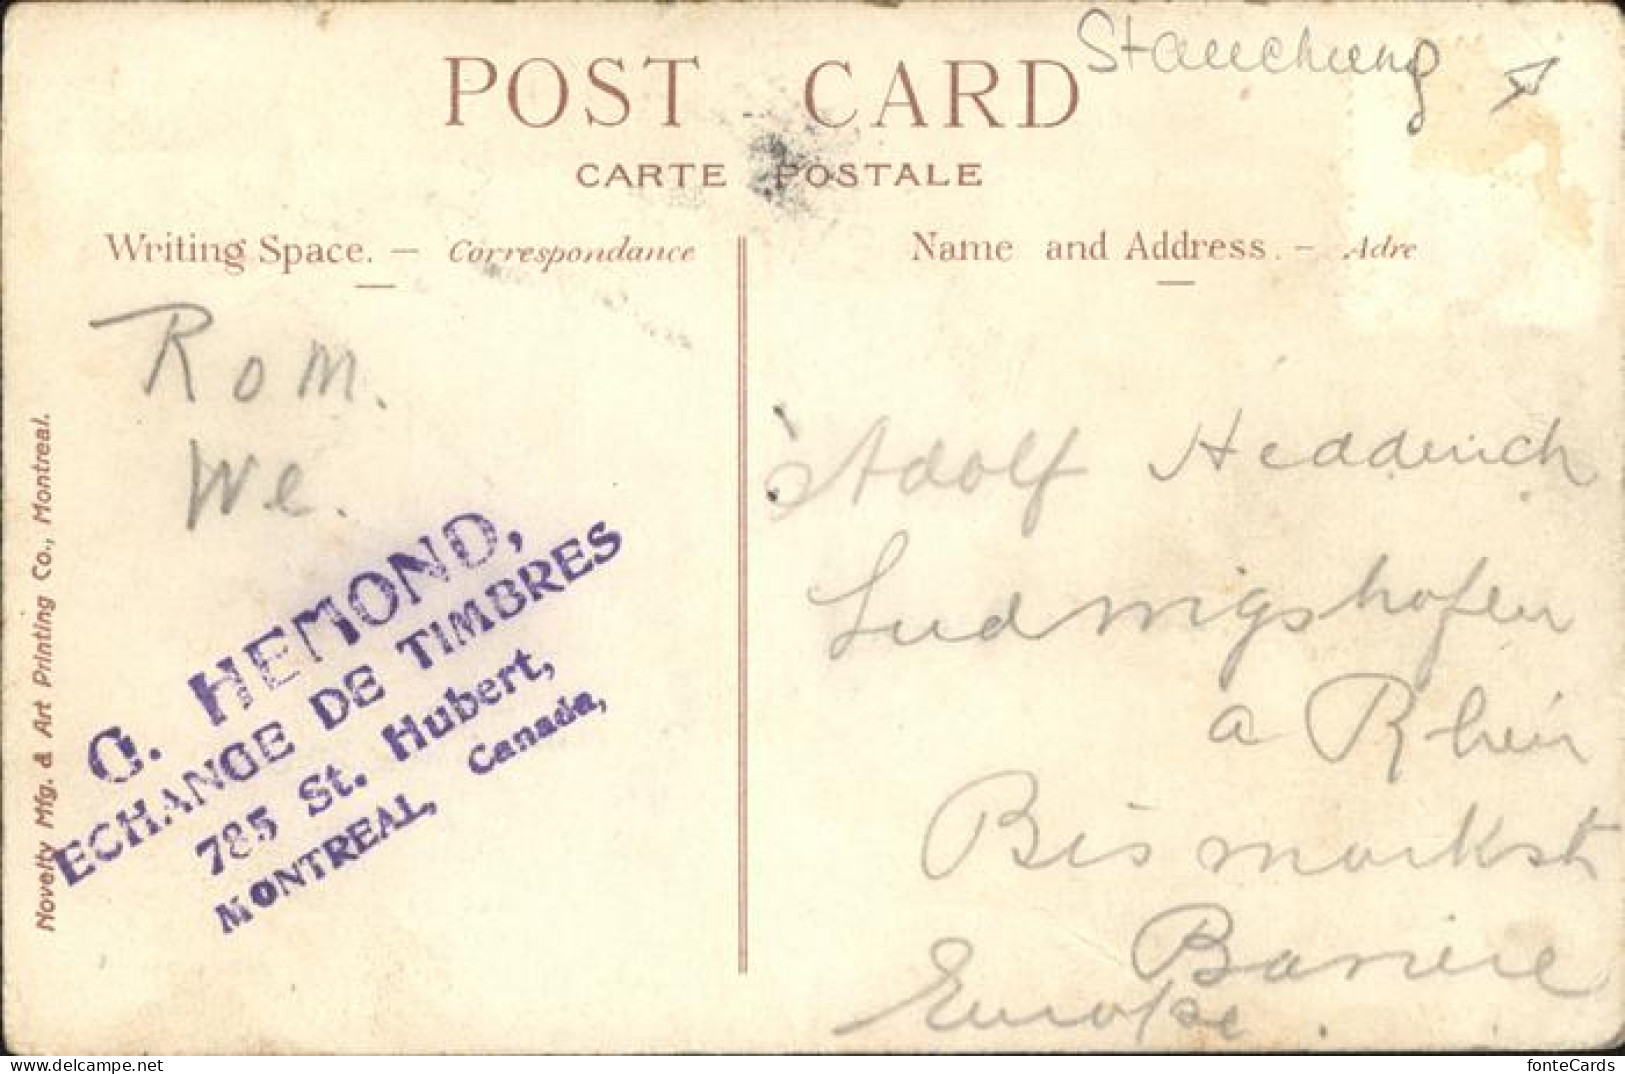 Stauchung
POST CARD
CARTE POSTALE
Writing Space. — Correspondance
Name and Address. — Adre
Rom.
We.
O. HEMOND,
ECHANGE DE TIMBRES
785 St. Hubert,
MONTREAL, Canada,
Novelty Mfg. & Art Printing Co., Montreal.
Adolf Hedderich
Ludwigshafen
a Rhein
Bismarkstr
Baviere
Europe.
www.delcampe.net
fonteCards